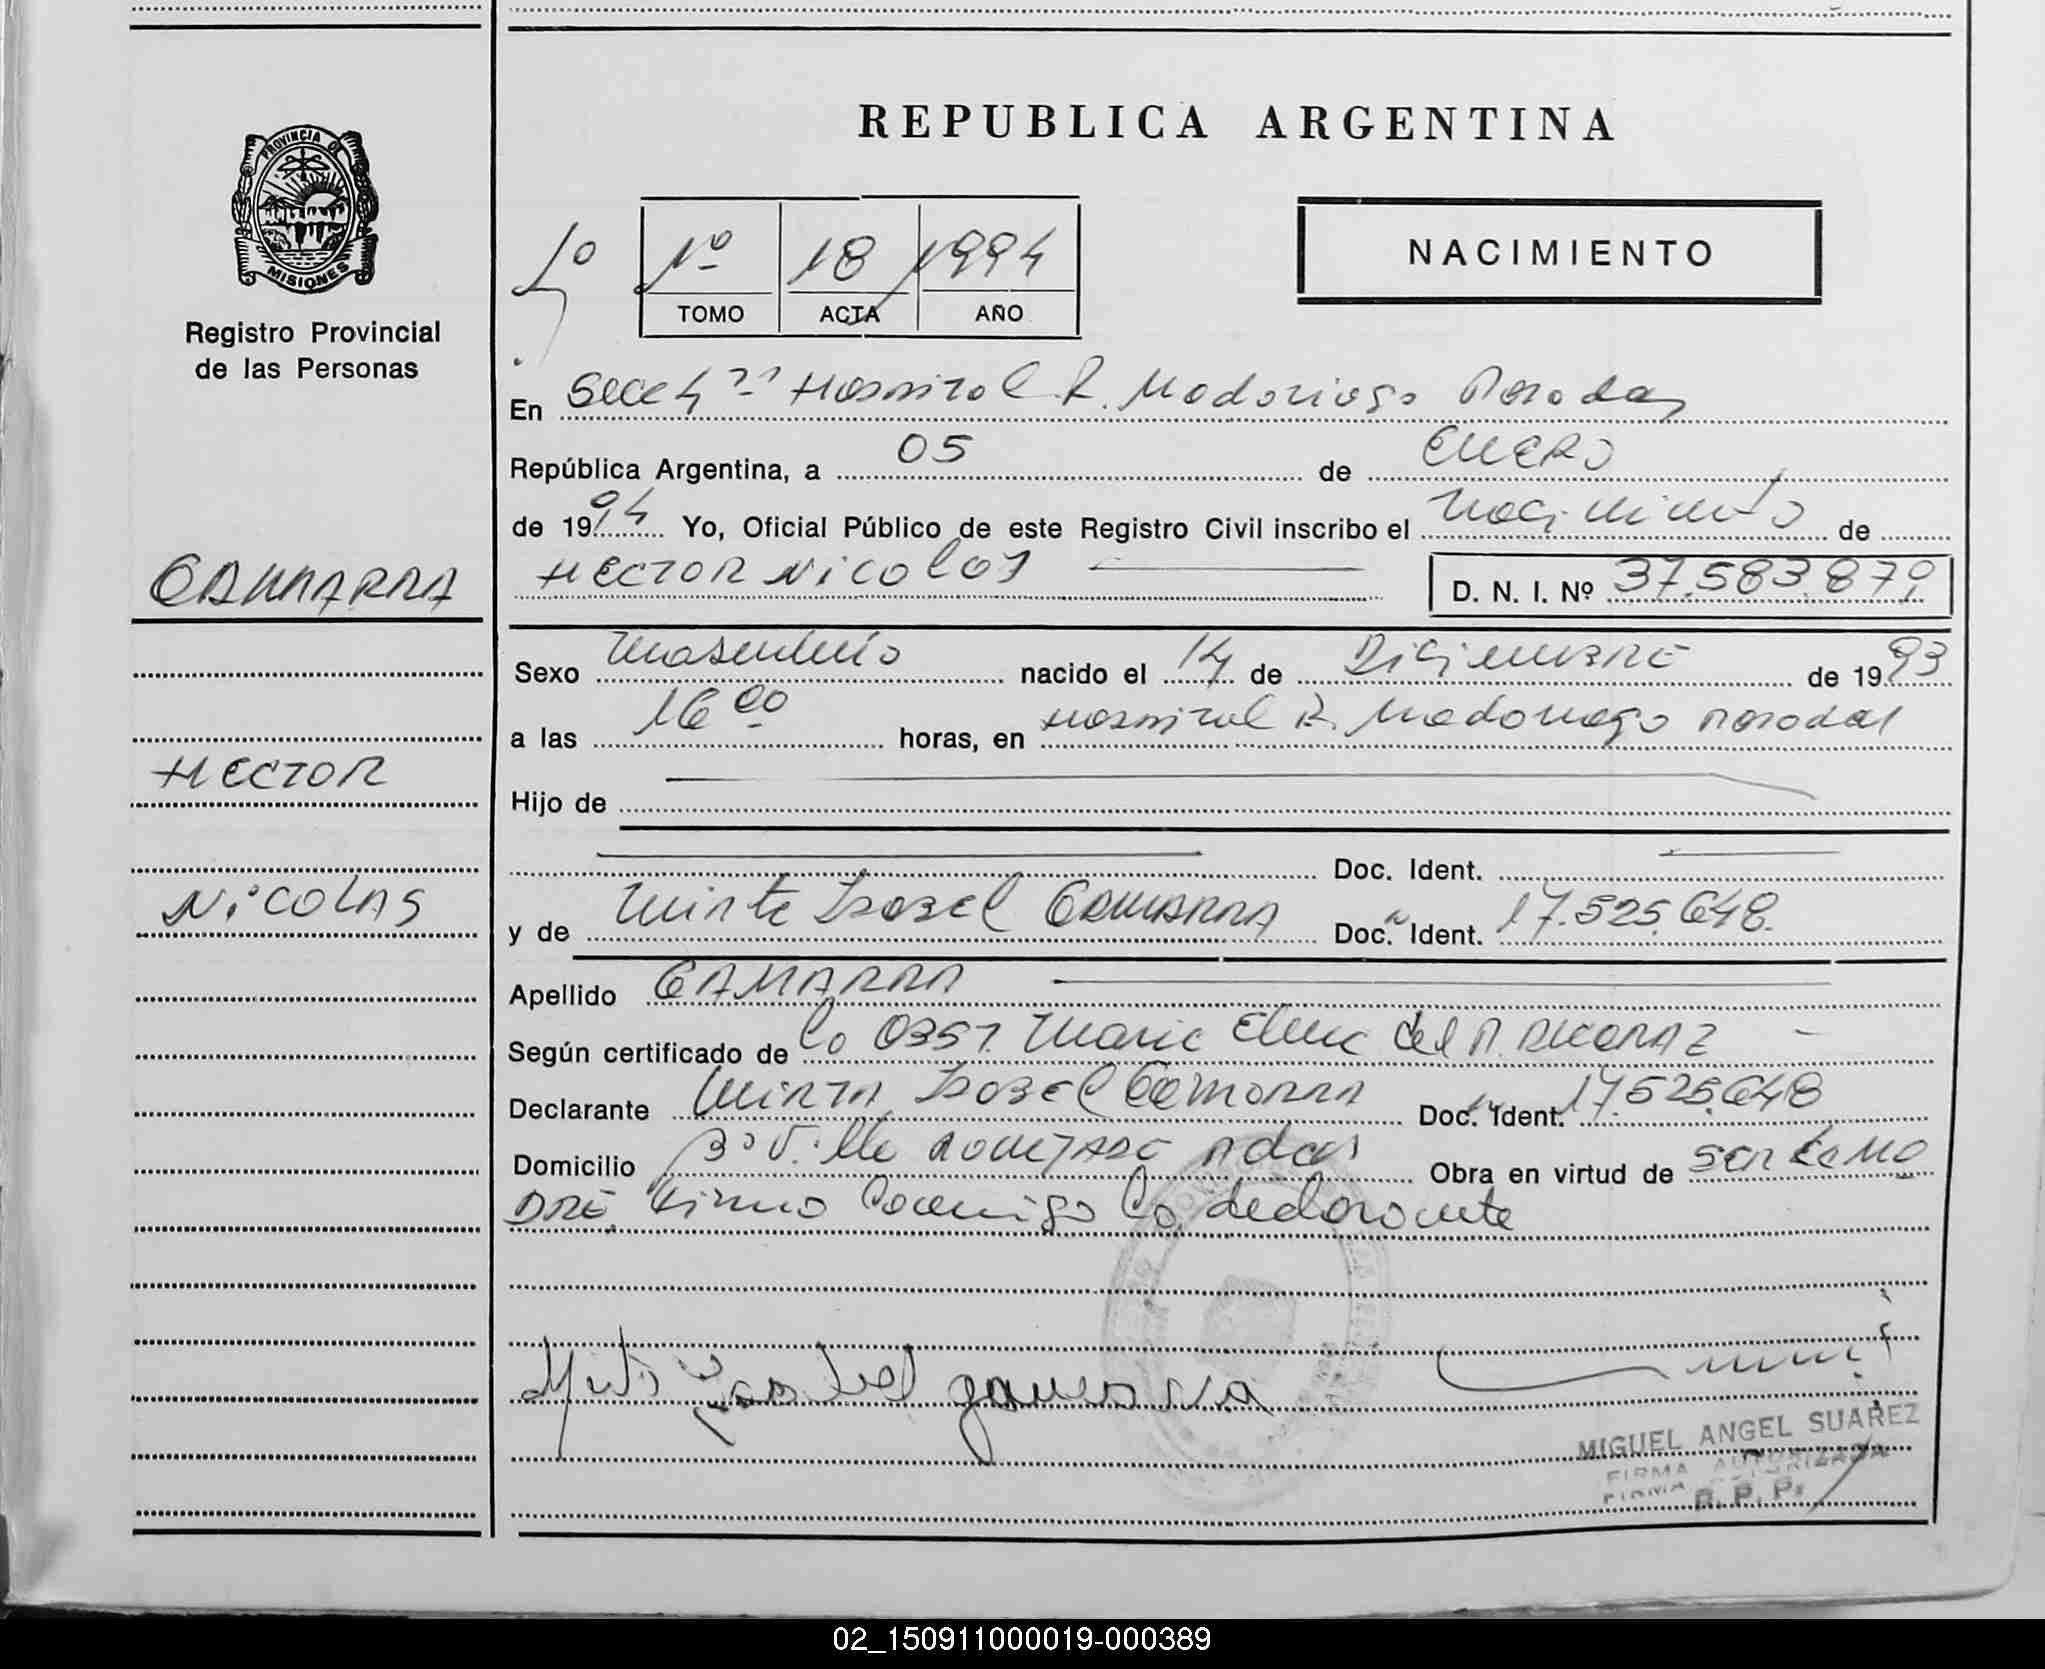 REPUBLICA ARGENTINA
PROVINCIA DE
MISIONES
Registro Provincial
de las Personas
1º 18 1994
TOMO ACTA AÑO
NACIMIENTO
En Secc 4ª Hospital R. Madariaga Posadas
República Argentina, a 05 de ENERO
de 1994 Yo, Oficial Público de este Registro Civil inscribo el Nacimiento de
HECTOR NICOLAS D. N. I. Nº 37.583.879
GAMARRA
HECTOR
NICOLAS
Sexo Masculino nacido el 14 de DICIEMBRE de 1993
a las 16 00 horas, en Hospital R. Madariaga Posadas
Hijo de
Doc. Ident.
y de Mirta Isabel GAMARRA Doc. Ident. 17.525.648.
Apellido GAMARRA
Según certificado de 0357. Maria del
Declarante MIRTA ISABEL GAMARRA Doc. Ident. 17.525.648
Domicilio Pdas Obra en virtud de SER LA MA
DRE Firma Conmigo La declarante
Mirta Isabel gamarra
MIGUEL ANGEL SUAREZ
FIRMA AUTORIZADA
R. P. P.
02_150911000019-000389